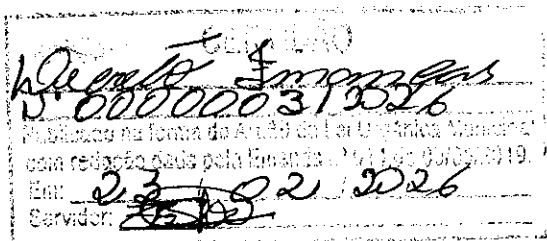 CERTIDÃO
Decreto Financeiro
Nº 00000031/2026
Publicado na forma do Art. da Lei Orgânica Municipal
com redação dada pela Emenda nº
Em: 23 / 02 / 2026
Servidor: